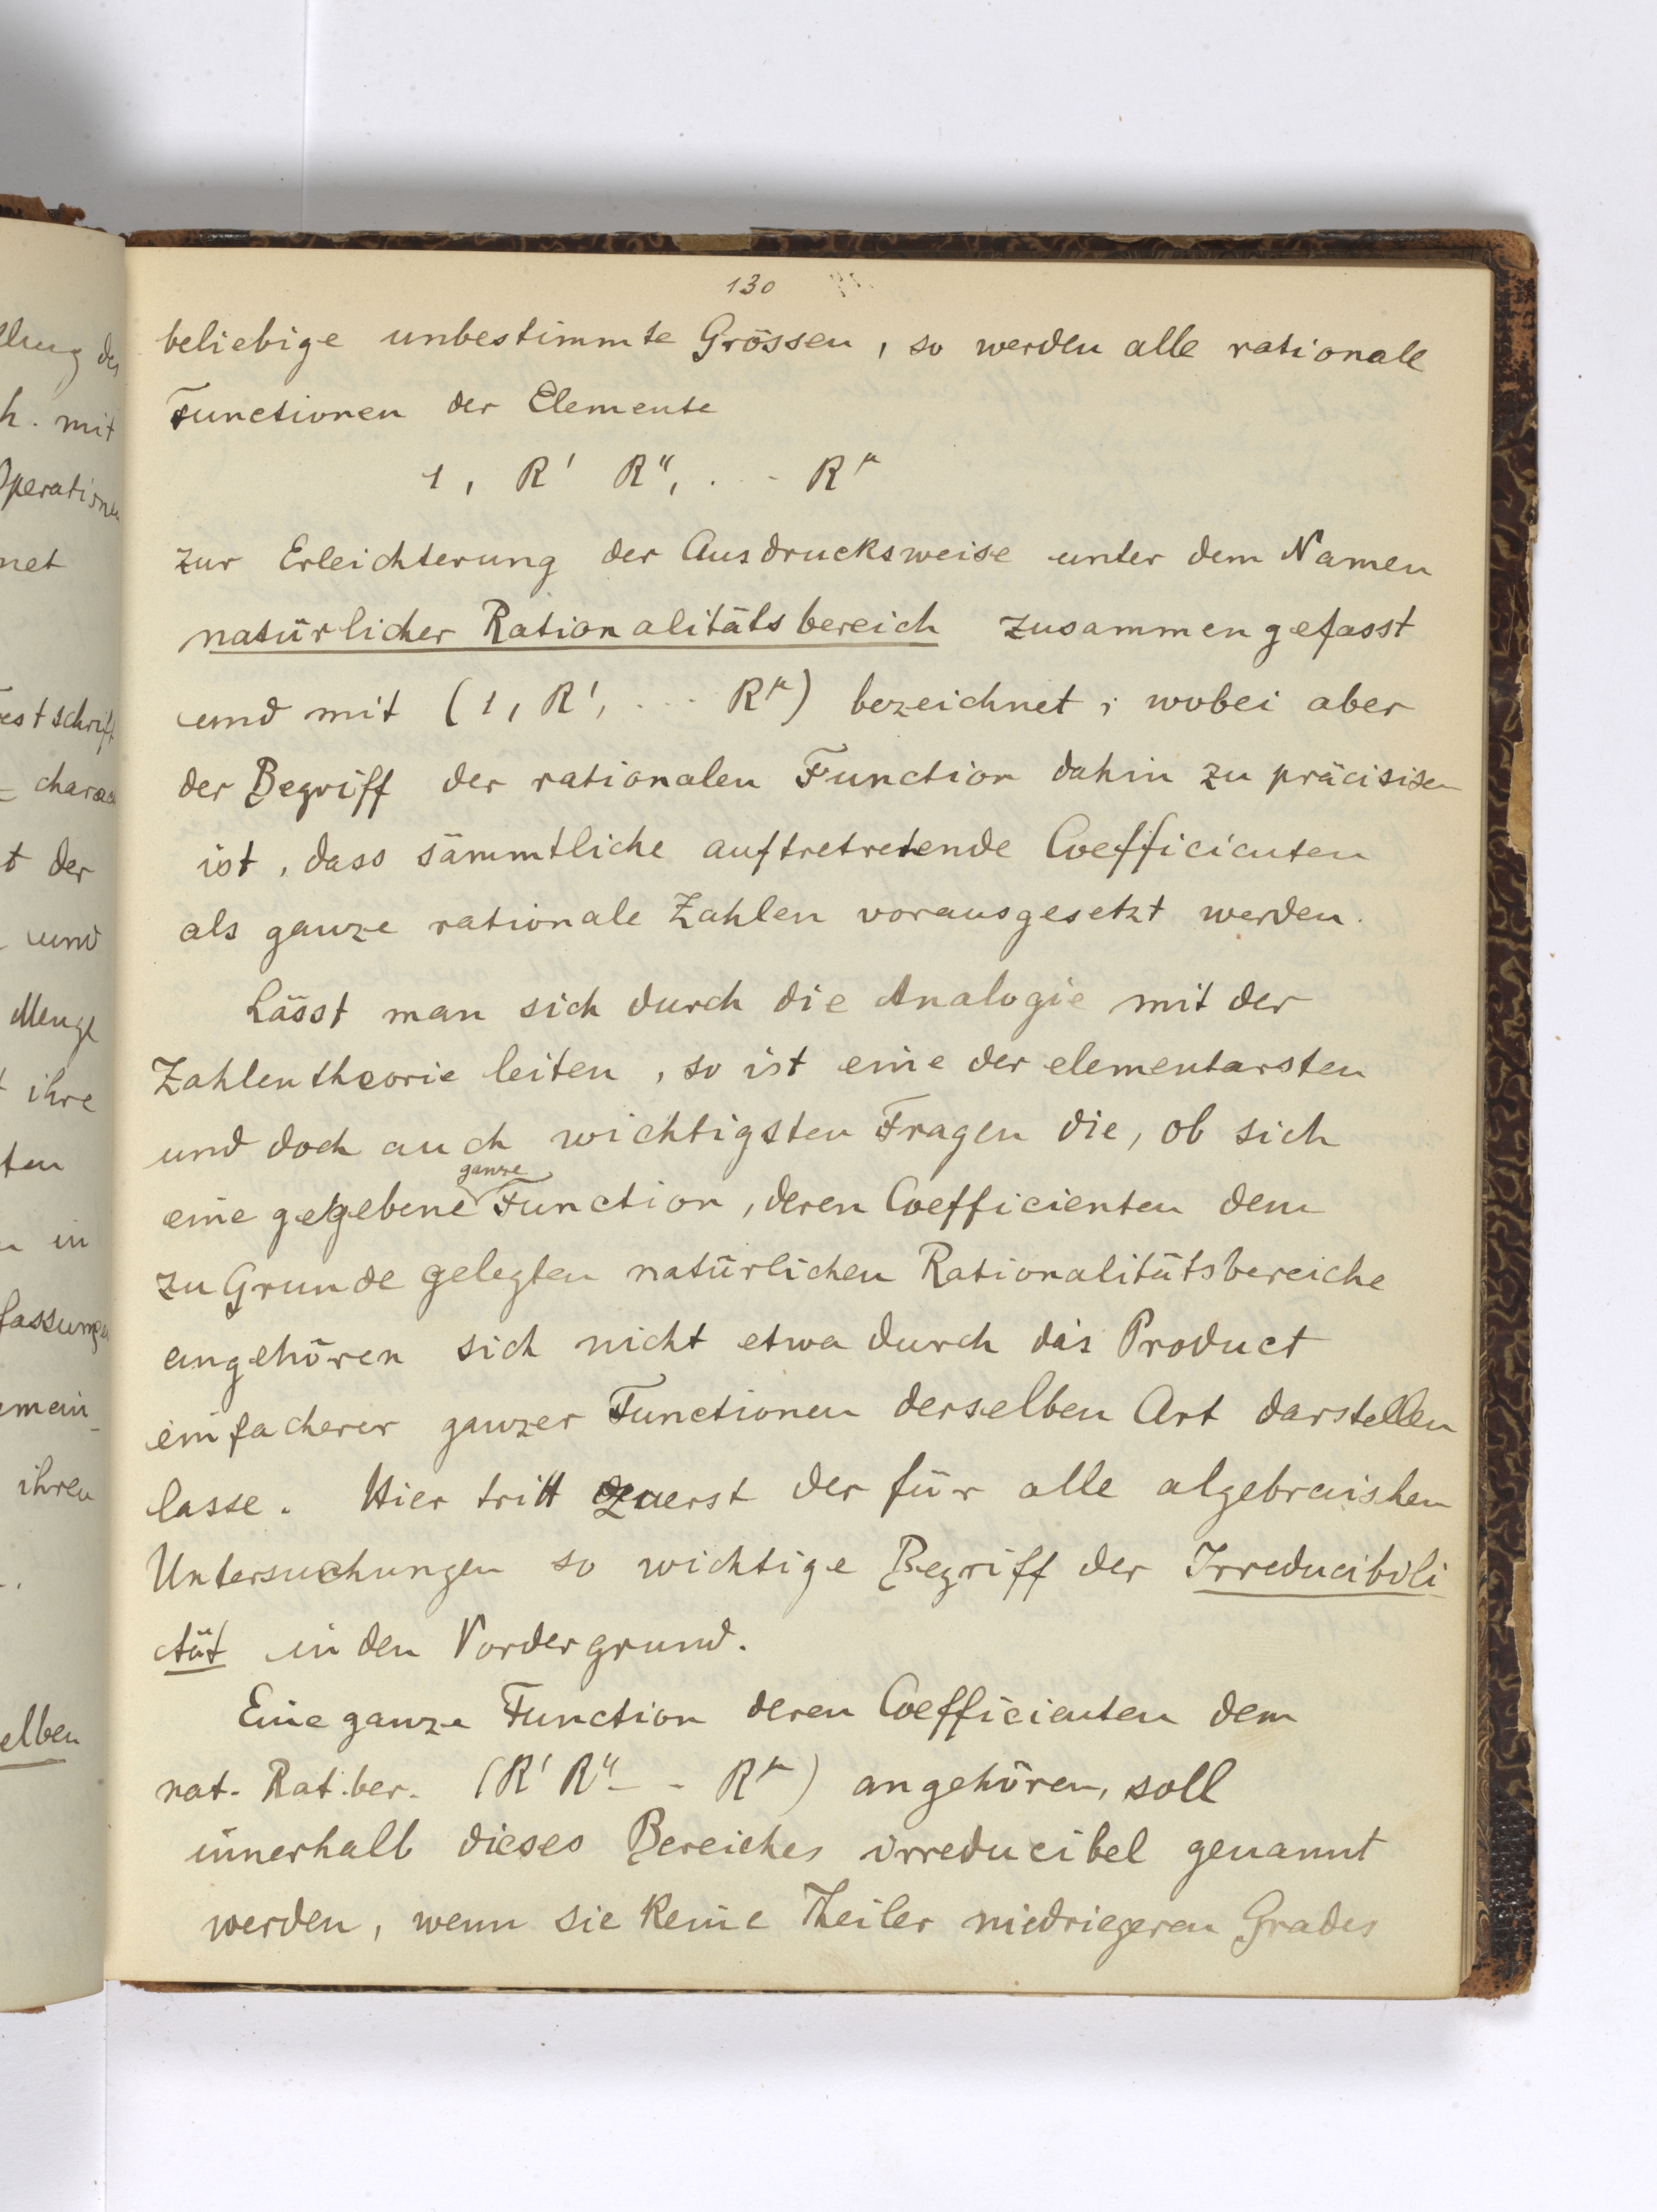 130
beliebige unbestimmte Grössen, so werden alle rationale
Functionen der Elemente
1, R' R'', . - R^μ
zur Erleichterung der Ausdrucksweise unter dem Namen
natürlicher Rationalitätsbereich zusammengefasst
und mit (1, R', . - - R^μ) bezeichnet; wobei aber
der Begriff der rationalen Function dahin zu präcisiren
ist, dass sämmtliche auftretretende Coefficienten
als ganze rationale Zahlen vorausgesetzt werden.
Lässt man sich durch die Analogie mit der
Zahlentheorie leiten, so ist eine der elementarsten
und doch auch wichtigsten Fragen die, ob sich
ganze
eine gegebene Function, deren Coefficienten dem
zu Grunde gelegten natürlichen Rationalitätsbereiche
angehören sich nicht etwa durch das Product
einfacherer ganzer Functionen derselben Art darstellen
lasse. Hier tritt zuerst der für alle algebraishen
Untersuchungen so wichtige Begriff der Irreducibili
tät in den Vordergrund.
Eine ganze Function deren Coefficienten dem
nat. Rat.ber. (R' R'' - - R^μ) angehören, soll
innerhalb dieses Bereiches irreducibel genannt
werden, wenn sie keine Theiler niedrigeren Grades
h. mit
net
t der
und
Menge
ihre
ten
in
ihren
elben